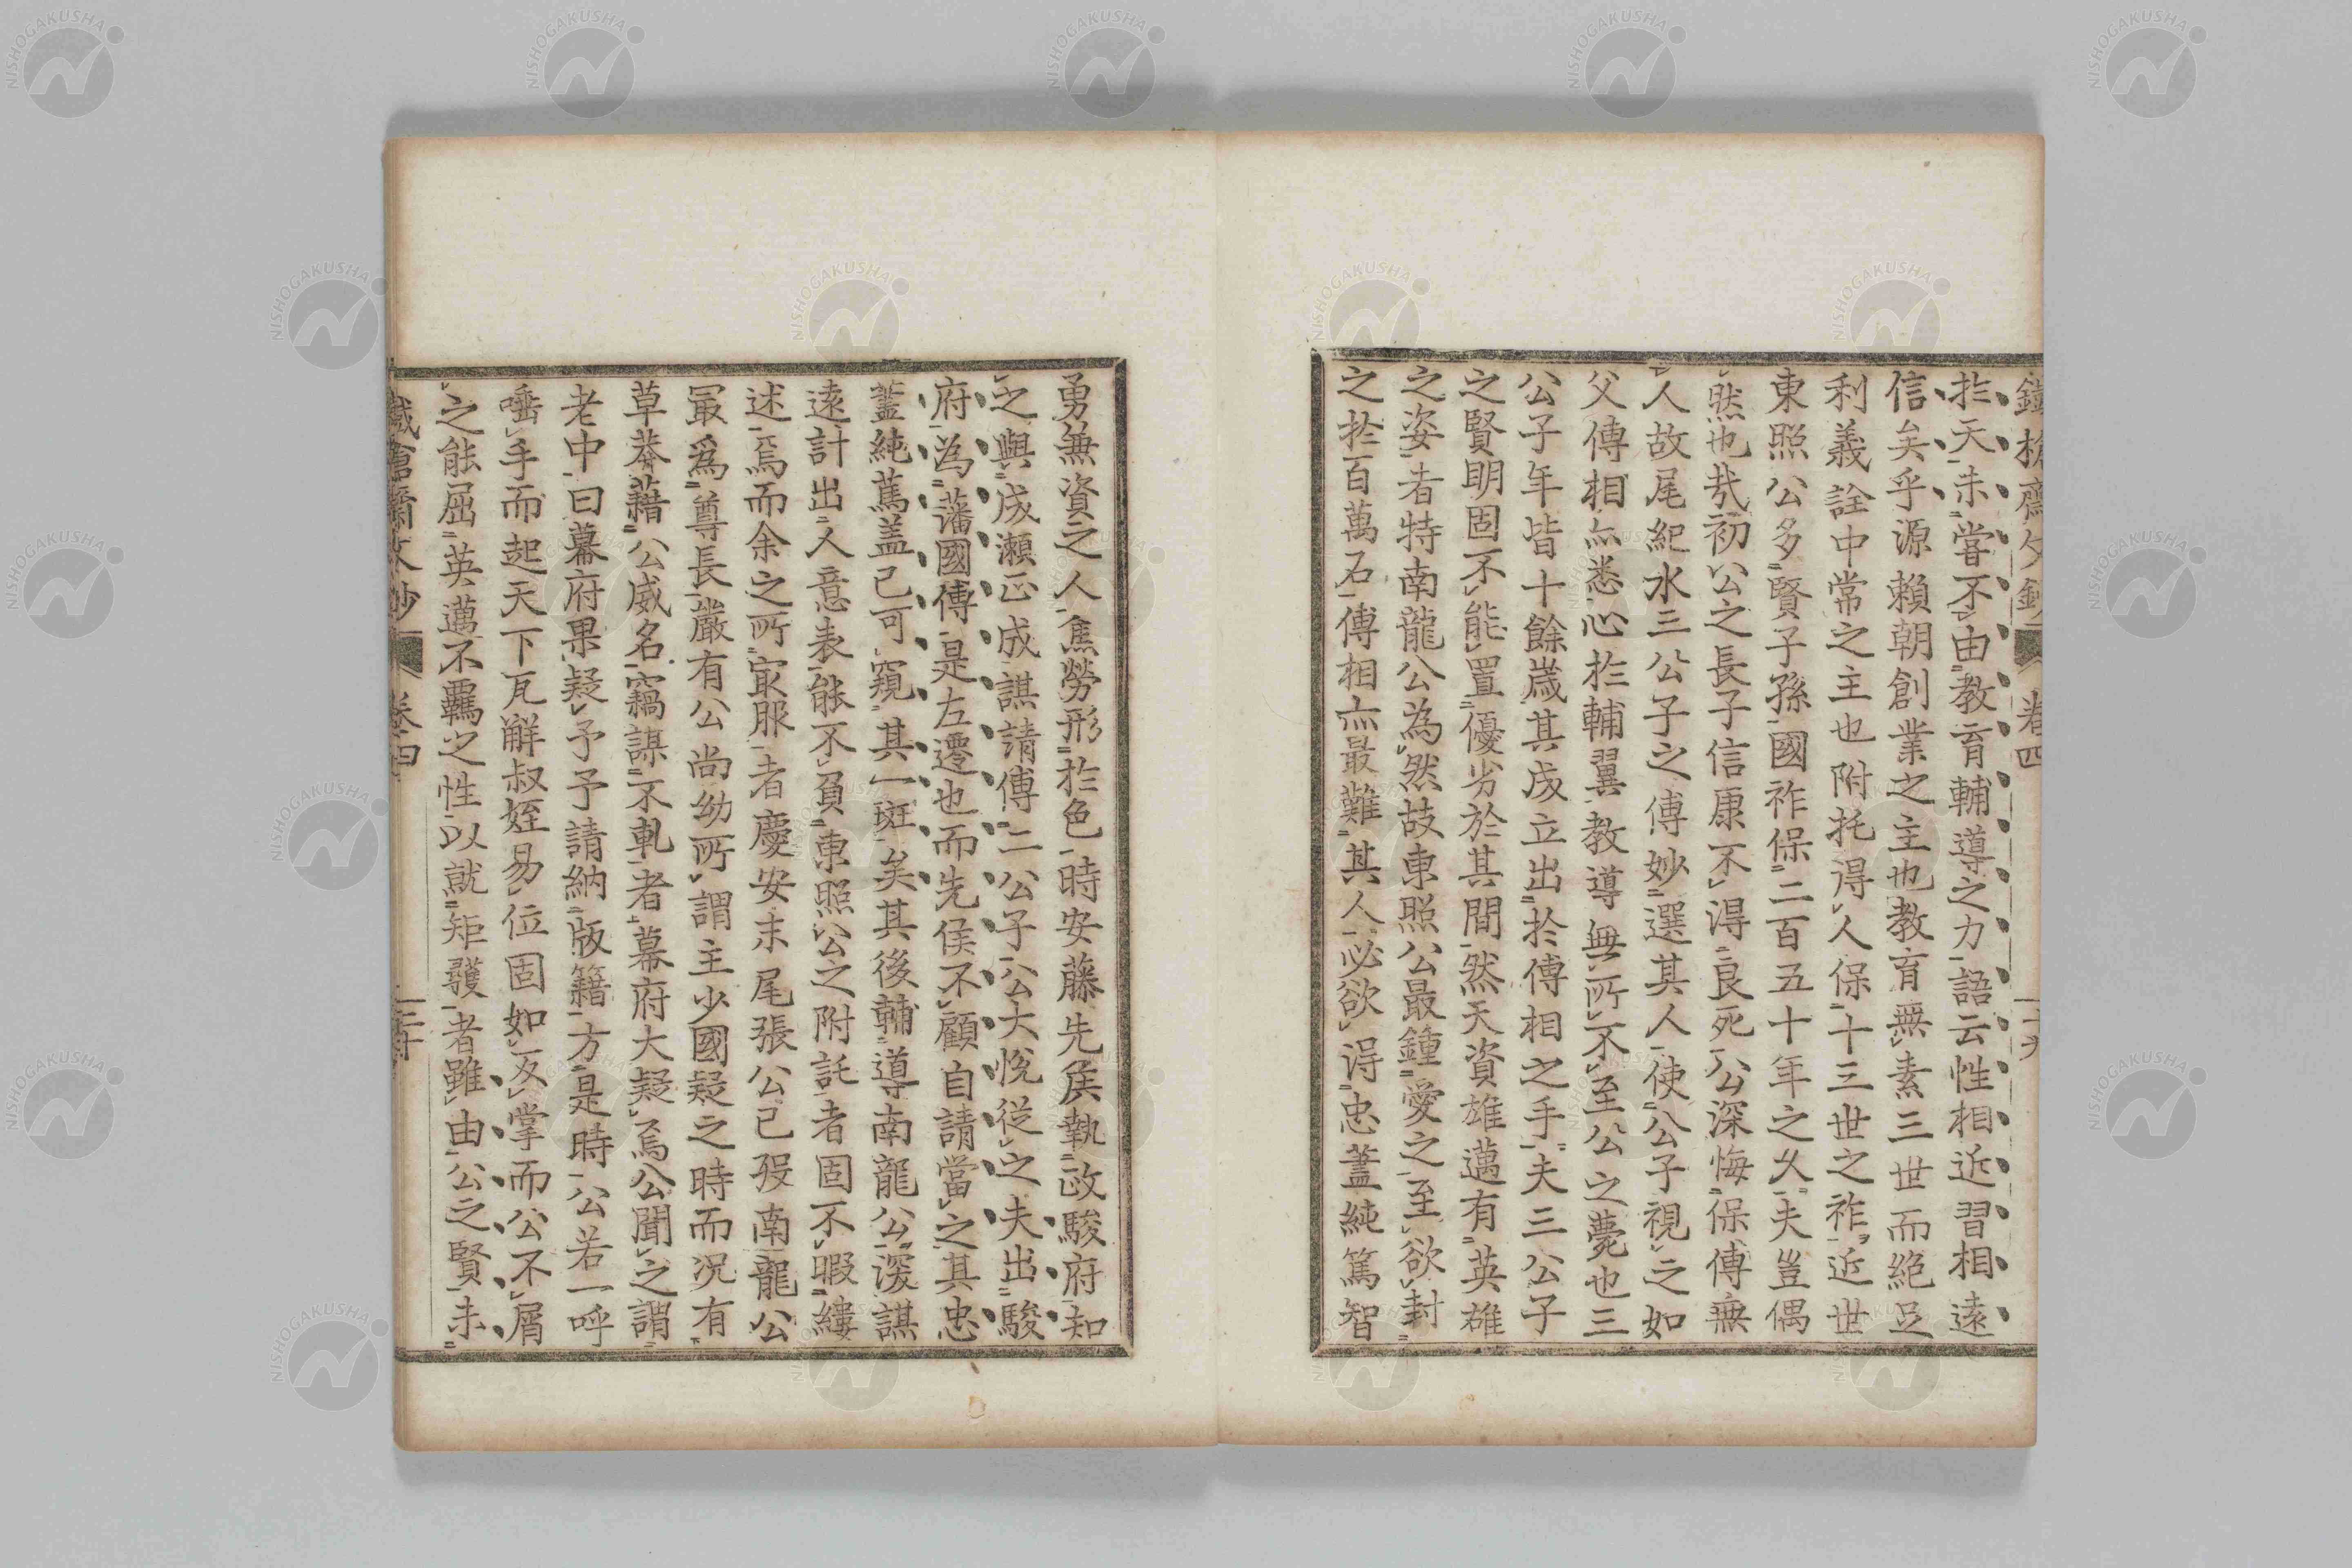 鐵槍齋文鈔 卷四 二十九
於天未嘗不由教育輔導之力語云性相近習相遠
信矣乎源賴朝創業之主也教育無素三世而絕足
利義詮中常之主也附托得人保十三世之祚近世
東照公多賢子孫國祚保二百五十年之久夫豈偶
然也哉初公之長子信康不得良死公深悔保傅無
人故尾紀水三公子之傅妙選其人使公子視之如
父傅相亦悉心於輔翼教導無所不至公之薨也三
公子年皆十餘歳其成立出於傅相之手夫三公子
之賢明固不能置優劣於其間然天資雄邁有英雄
之姿者特南龍公為然故東照公最鍾愛之至欲封
之於百萬石傅相亦最難其人必欲得忠藎純篤智
勇兼資之人焦勞形於色時安藤先侯執政駿府知
之與成瀬正成謀請傅二公子公大悅從之夫出駿
府為藩國傅是左遷也而先侯不顧自請當之其忠
藎純篤盖已可窺其一斑矣其後輔導南龍公深謀
遠計出人意表能不負東照公之附託者固不暇縷
述焉而余之所寂服者慶安末尾張公已歿南龍公
冣為尊長嚴有公尚幼所謂主少國疑之時而況有
草莽藉公威名竊謀不軌者幕府大疑焉公聞之謂
老中曰幕府果疑予予請納版籍方是時公若一呼
唾手而起天下瓦解叔姪易位固如反掌而公不屑
之能屈英邁不羈之性以就矩矱者雖由公之賢未
鐵槍齋文鈔 卷四 三十